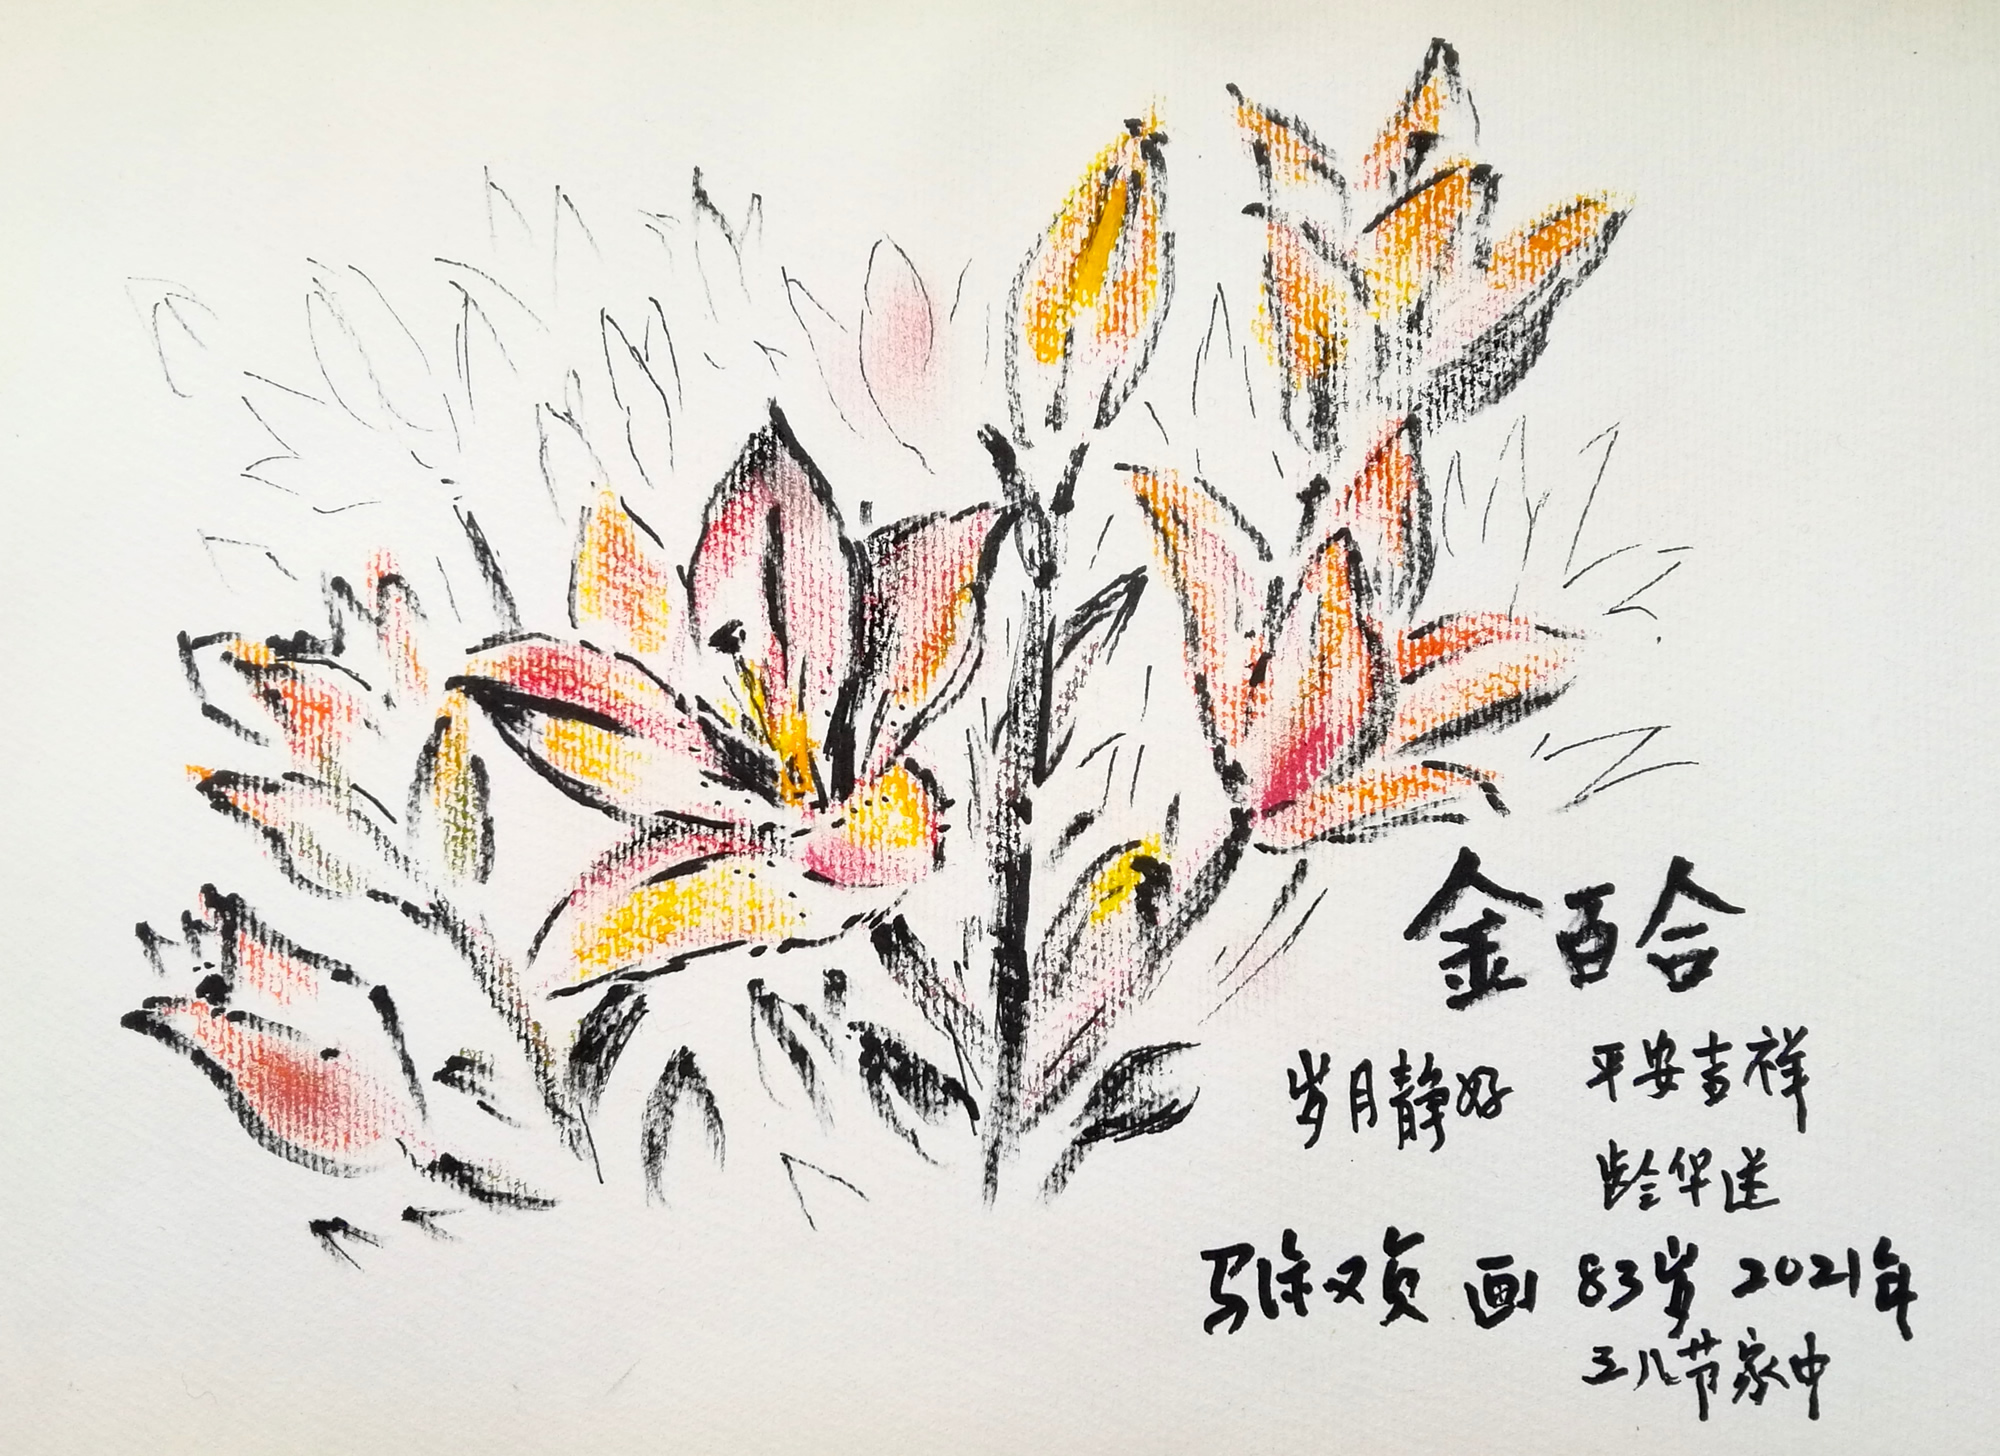 金百合
岁月静好 平安吉祥
龄华送
又贞 画 83岁 2021年
三八节家中